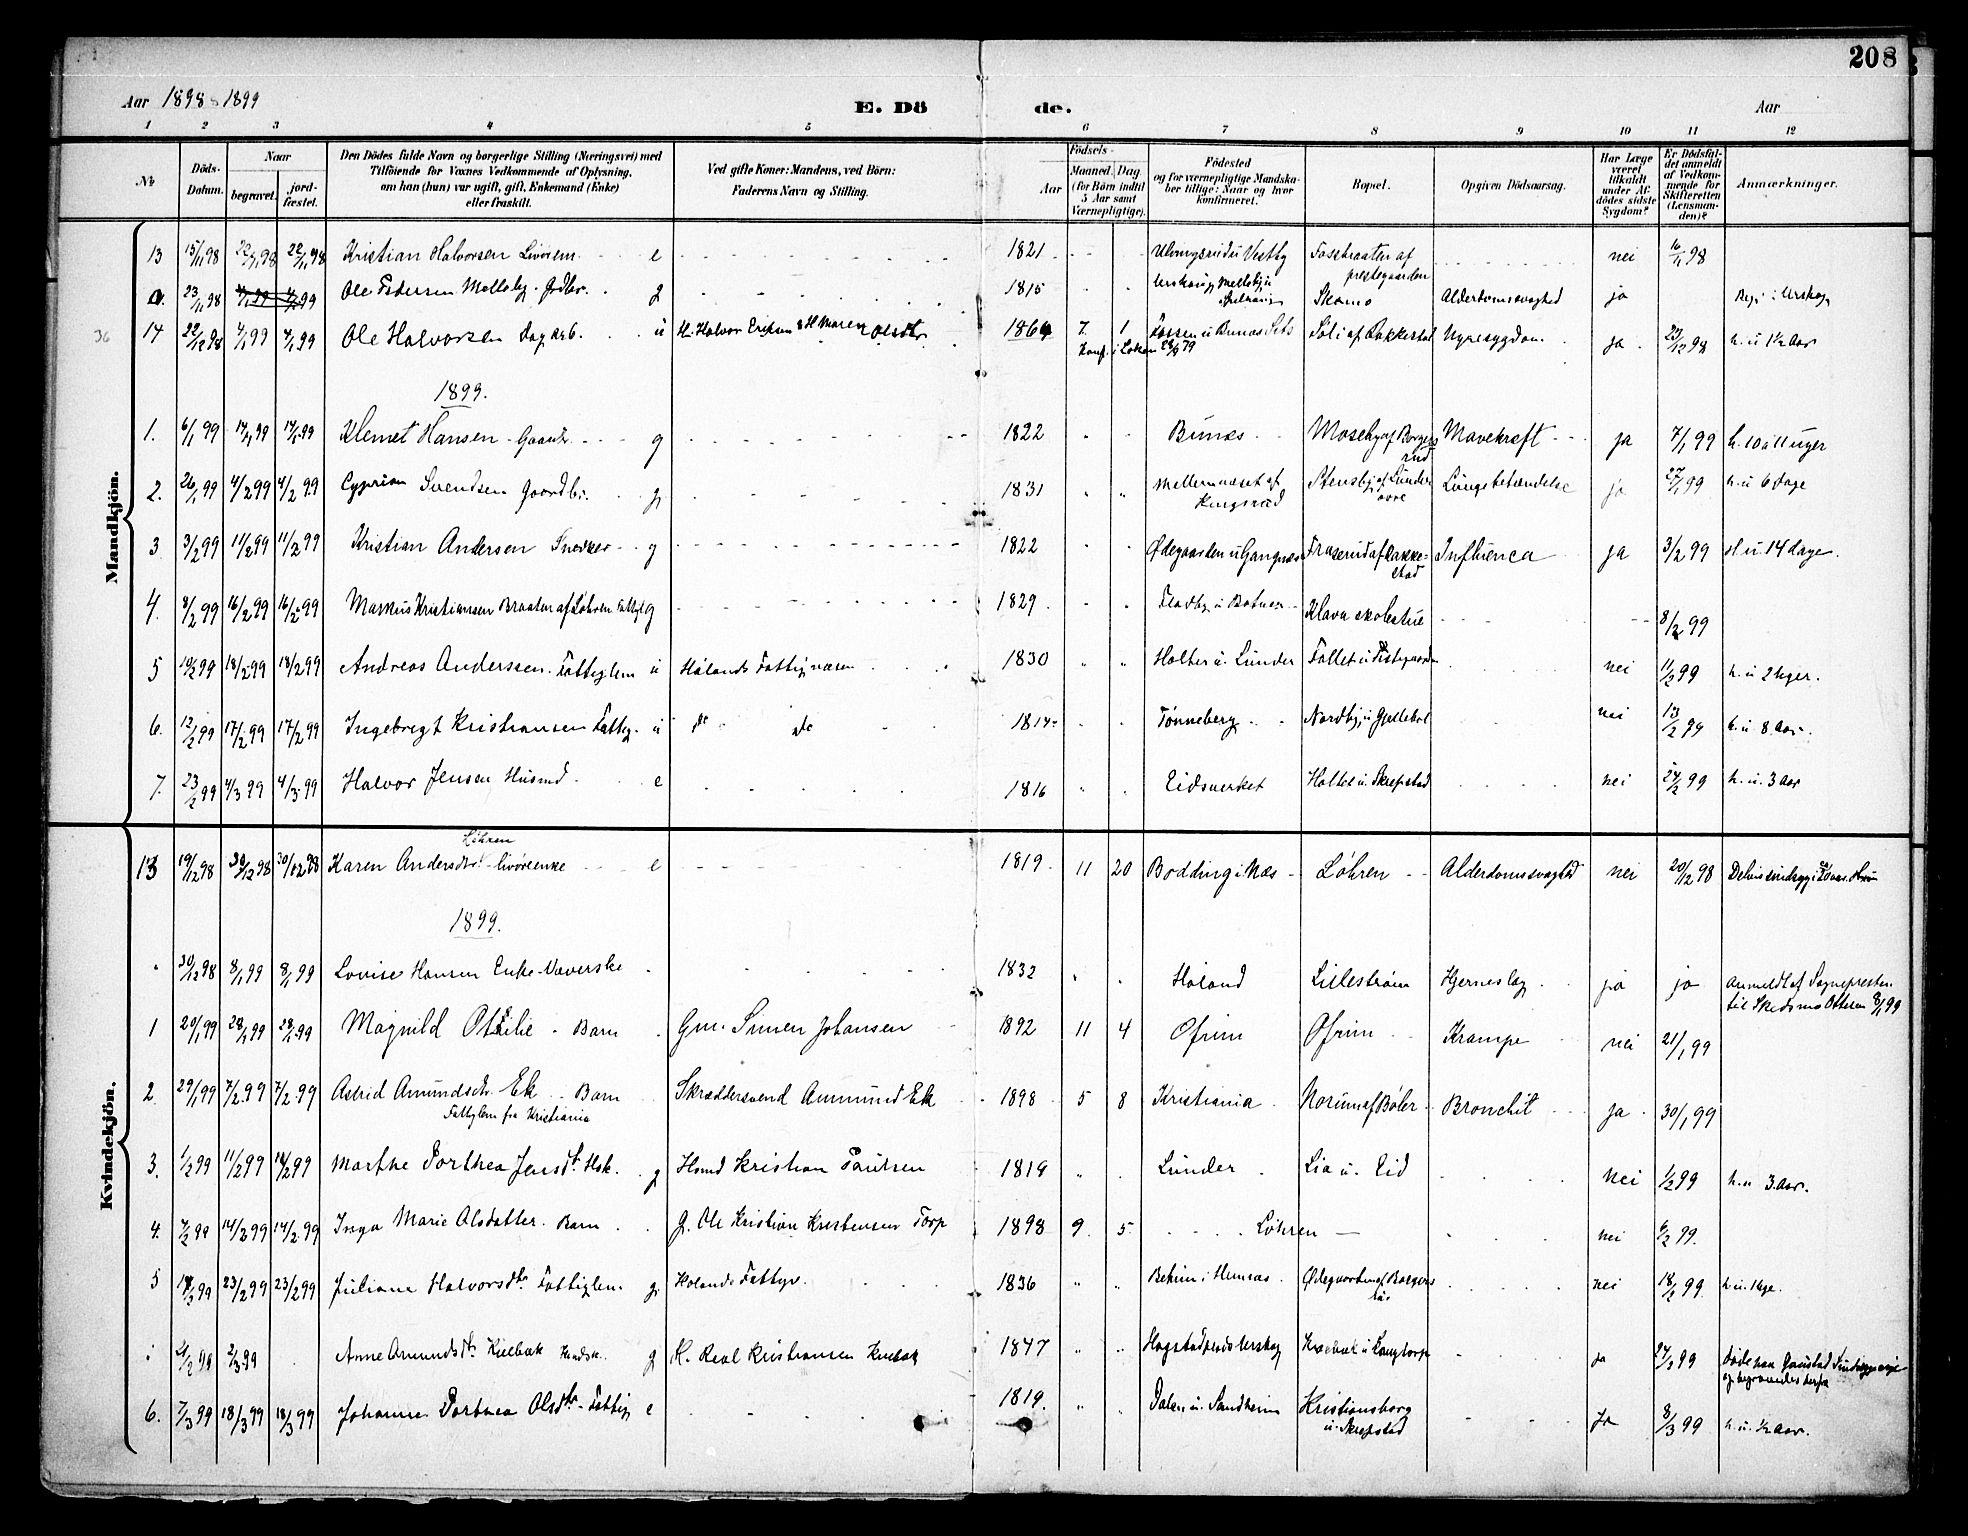 208
Aar 1898 1899 E. Dö de. Aar
1 2 3 4 5 6 7 8 9 10 11 12
№ Döds-Datum. Naar begravet. jordfæstet. Den Dödes fulde Navn og borgerlige Stilling (Næringsvei) med Tilföiende for Voxnes Vedkommende af Oplysning, om han (hun) var ugift, gift, Enkemand (Enke) eller fraskilt. Ved gifte Koner: Mandens, ved Börn: Faderens Navn og Stilling. Födsels- Aar Maaned. Dag (for Börn indtil 5 Aar samt Værnepligtige). Födested og for værnepligtige Mandskaber tillige: Naar og hvor konfirmeret. Bopæl. Opgiven Dödsaarsag. Har Læge været tilkaldt under Afdödes sidste Sygdom? Er Dödsfaldet anmeldt af Vedkommende for Skifteretten (Lensmanden)? Anmærkninger.
Mandkjön.
13 15/11 98 22/11 98 22/11 98 Kristian Halvorsen e 1821 Vestby af prestegaarden nei 16/11 98
23/11 98 4/1 99 4/1 99 Ole Pedersen Melleby g 1815 Alderdomssvaghed ja Begr. i Urskog
36 14 22/12 98 4/1 99 4/1 99 Ole Halvorsen Dagarb. u Halvor Eriksen Maren Olsdtr 1864 7. 1 Konf. i Løken 28/9 79 Nyresygdom ja 23/12 98 h. u 1½ Aar
1899.
1. 6/1 99 14/1 99 14/1 99 Klemet Hansen Gaardb. g 1822 Bunæs Moseby af Borgersrud Mavekræft ja 7/1 99 h. 10 a 11 uger
2. 26/1 99 4/2 99 4/2 99 Cyprian Svendsen Gaardbr. g 1831 Mellemnæset af Kingsrud Stensby af Lunder øvre Lungebetændelse ja 27/1 99 h. u 6 dage
3 3/2 99 11/2 99 11/2 99 Kristian Andersen Snedker g 1822 Ødegaarden u Gangnæs Fraserud af Rakkestad Influenca ja 3/2 99 H. u. 14 dage.
4. 8/2 99 16/2 99 16/2 99 Markus Kristiansen Braaten af Løhren Fattigl g 1829 Flatby u Botner Klava skolestue 8/2 99
5 10/2 99 18/2 99 18/2 99 Andreas Anderssen Fattiglem u Hølands Fattigvæsen 1830 Holter u. Lunder Fallet u Prestegaarden nei 11/2 99 h. u 2 Uger.
6. 12/2 99 17/2 99 17/2 99 Ingebregt Kristiansen Fattig. u do do 1814 Tønneberg Nordby u Gjellebøl nei 13/2 99 h. u. 8 Aar.
7. 23/2 99 4/3 99 4/3 99 Halvor Jensen Husmd. e 1816 Eidsverket Holtet u. Skrepstad nei 24/2 99 h. u. 3 Aar
Kvindekjön.
13 19/12 98 30/12 98 30/12 98 Karen Andersdtr. Løhren livøreenke e 1819 11 20 Bodding i Næs Løhren Alderdomssvaghed nei 20/12 98
1899.
30/12 98 8/1 99 8/1 99 Lovise Hansen Enke Væverske 1832 Høland Lillestrøm Hjerneslag ja ja Anmeldt af Sognepresten til Skedsmo 8/1 99
1 20/1 99 28/1 99 28/1 99 Magnild Otilie Barn Gm. Simen Johansen 1892 11 4 Ofrim Ofrim Krampe nei 21/1 99
2 29/1 99 7/2 99 7/2 99 Astrid Amundsdtr. Ek Barn Skræddersvend Ammund Ek 1898 5 8 Kristiania Norum af Bøler Bronchit ja 30/1 99
Fattiglem fra Kristiania
3. 1/2 99 11/2 99 11/2 99 Marthe Dorthea Jensdtr. Hsk. g Hsmd Kristian Paulsen 1819 Lunder Lia u. Eid nei 1/2 99 h. u 3 Aar.
4. 4/2 99 14/2 99 14/2 99 Inga Marie Olsdatter Barn G. Ole Kristian Kristensen Torp 1898 9 5 Løhren nei 6/2 99.
5 17/2 99 23/2 99 23/2 99 Juliane Halvorsdtr Fattiglem. g. Hølands Fattigv. 1836 Bekim i Nemnæs Ødegaarden af Borgenaas nei 18/2 99 h. u. 1 Uge.
2/3 99 Anne Amundsdtr. Kielbæk g Kristiansen 1847 Krækbæk u Langtorp ja 27/2 99 døde paa Gaustad Sindsygeasyl og begravedes derfra
6. 7/3 99 18/3 99 18/3 99 Johanne Dorthea Olsdtr Fattig e 1819. Dalen u. Sandheim Kristiansborg u. Skrepstad ja 8/3 99 h. u. ½ Aar.